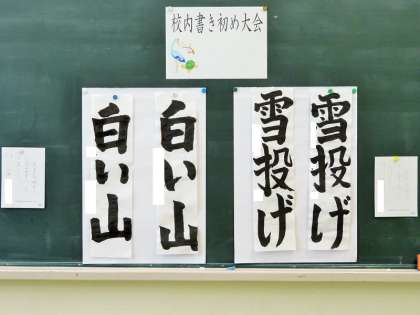 校内書き初め大会
雪投げ
雪投げ
白い山
白い山